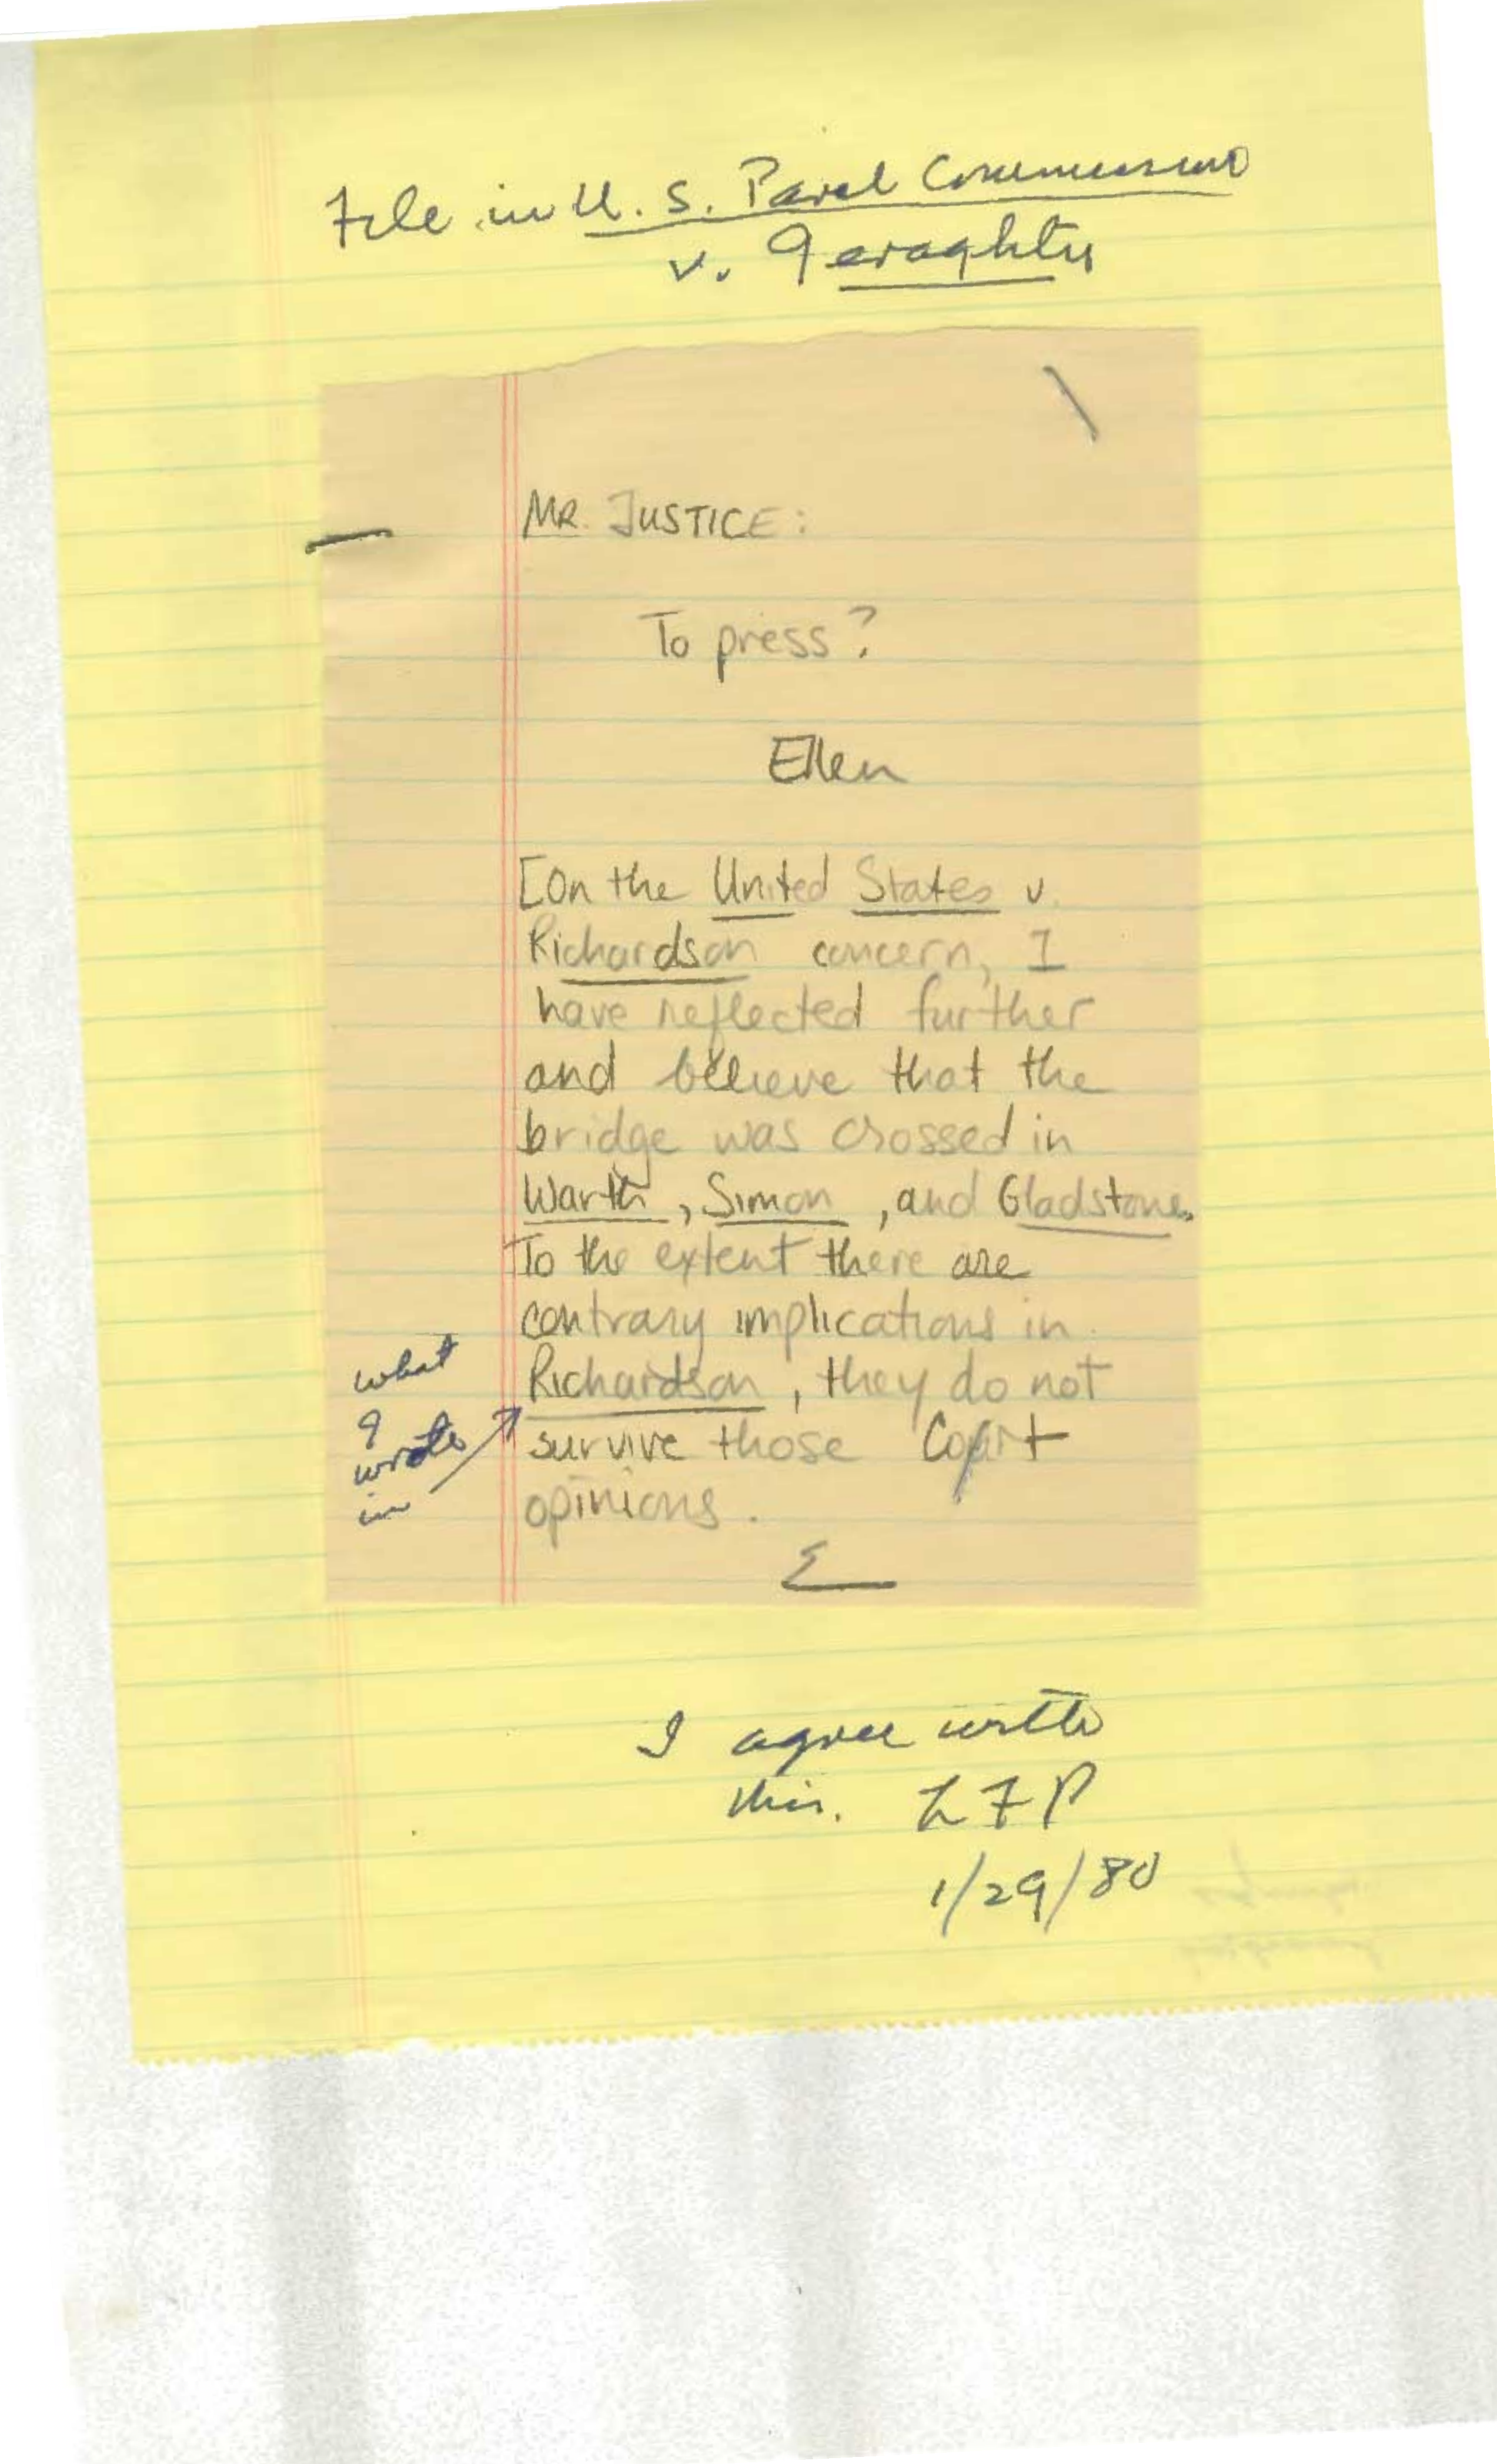 File in U. S. Parol Commission
v. Geraghty
MR. JUSTICE:
To press?
Ellen
[On the United States v.
Richardson concern, I
have reflected further
and believe that the
bridge was crossed in
Warth, Simon, and Gladstone.
To the extent there are
contrary implications in
Richardson, they do not
survive those Court
opinions.
E
what
I
wrote
in
I agree with
this. LFP
1/29/80